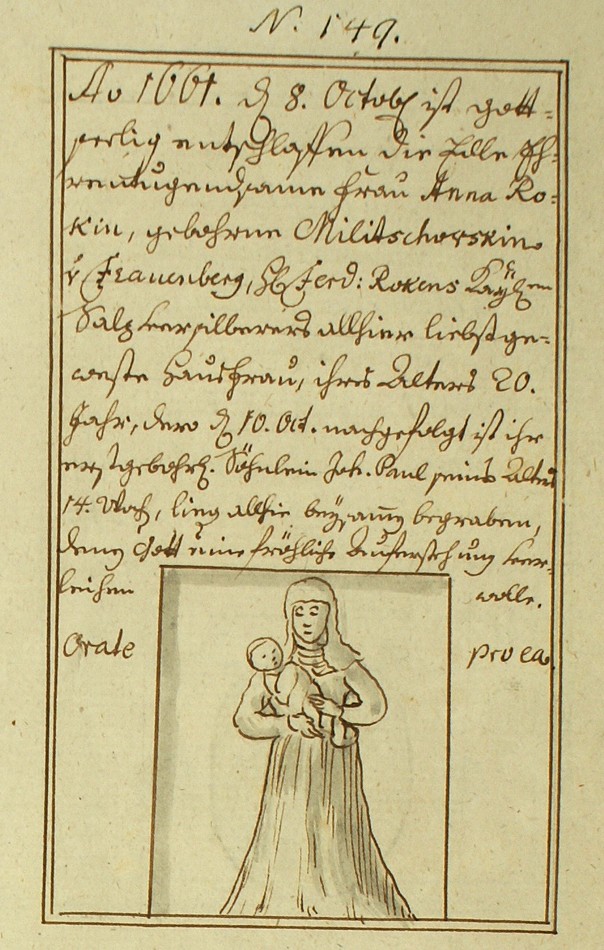 N. 149.
Ao 1661. d 8. Octob ist gott-
seelig entschlaffen die Edle Eh-
rentugendsame Frau Anna Ro-
kin, gebohrne Militschowskin
v Frauenberg, H Ferd: Rokens Kay
Salz versilberers allhier liebst ge-
weste Hausfrau, ihres Alters 20.
Jahr, dero d 10. Oct. nachgefolgt ist ihr
erstgebohrn. Söhnlein Joh. Paul seines Alters
14. Woch, lieg allhie beysamn begraben,
denen Gott eine fröhliche Auferstehung ver-
leichen wolle.
Orate pro ea.